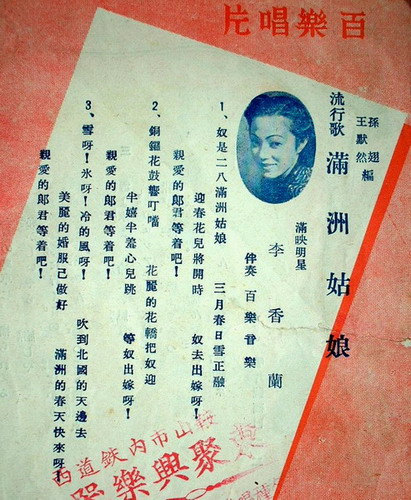 百樂唱片
孫翅
王默然 編
流行歌 滿洲姑娘
滿映明星
李香蘭
伴奏 百樂音樂
1、奴是二八滿洲姑娘 三月春日雪正融
迎春花兒將開時 奴去出嫁呀!
親愛的郎君等着吧!
2、銅鑼花鼓響叮噹 花麗的花轎把奴迎
半嬉半羞心兒跳 等奴出嫁呀!
親愛的郎君等着吧!
3、雪呀!氷呀!冷的風呀! 吹到北國的天邊去
美麗的婚服已做好 滿洲的春天快來呀!
親愛的郎君等着吧!
鞍山市內鉄道西
東聚興樂